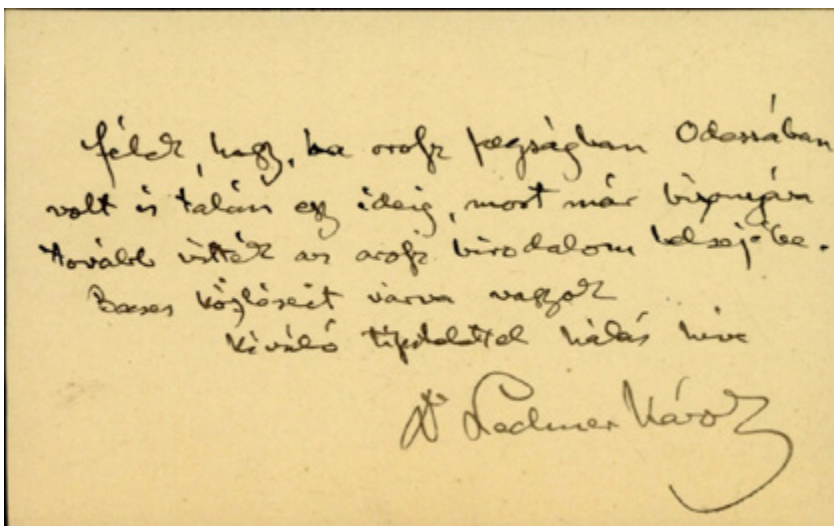 félek, hogy, ha orosz fogságban Odessában
volt is talán egy ideig, most már bizonyára
tovább vitték az orosz birodalom belsejébe.
Becses közléseit várva vagyok
kiváló tisztelettel hálás híve
Dr Lechner Károly